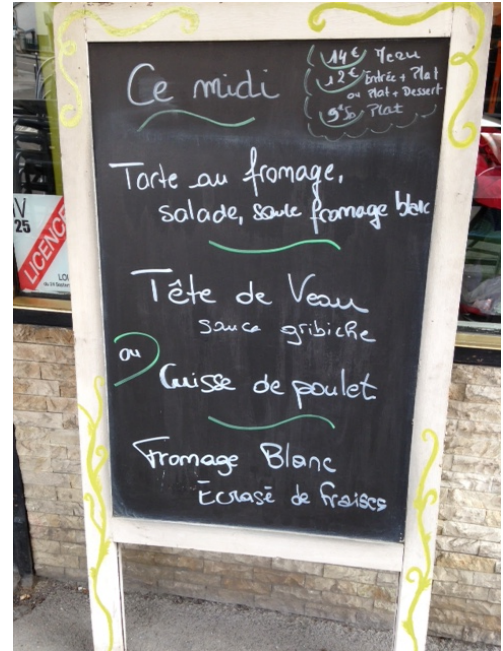 Ce midi
14€ Menu
12€ Entrée + Plat
ou Plat + Dessert
9€50 Plat
Tarte au fromage,
salade, sauce fromage blanc
Tête de Veau
sauce gribiche
ou
Cuisse de poulet
Fromage Blanc
Ecrasé de fraises
IV
25
LICENCE